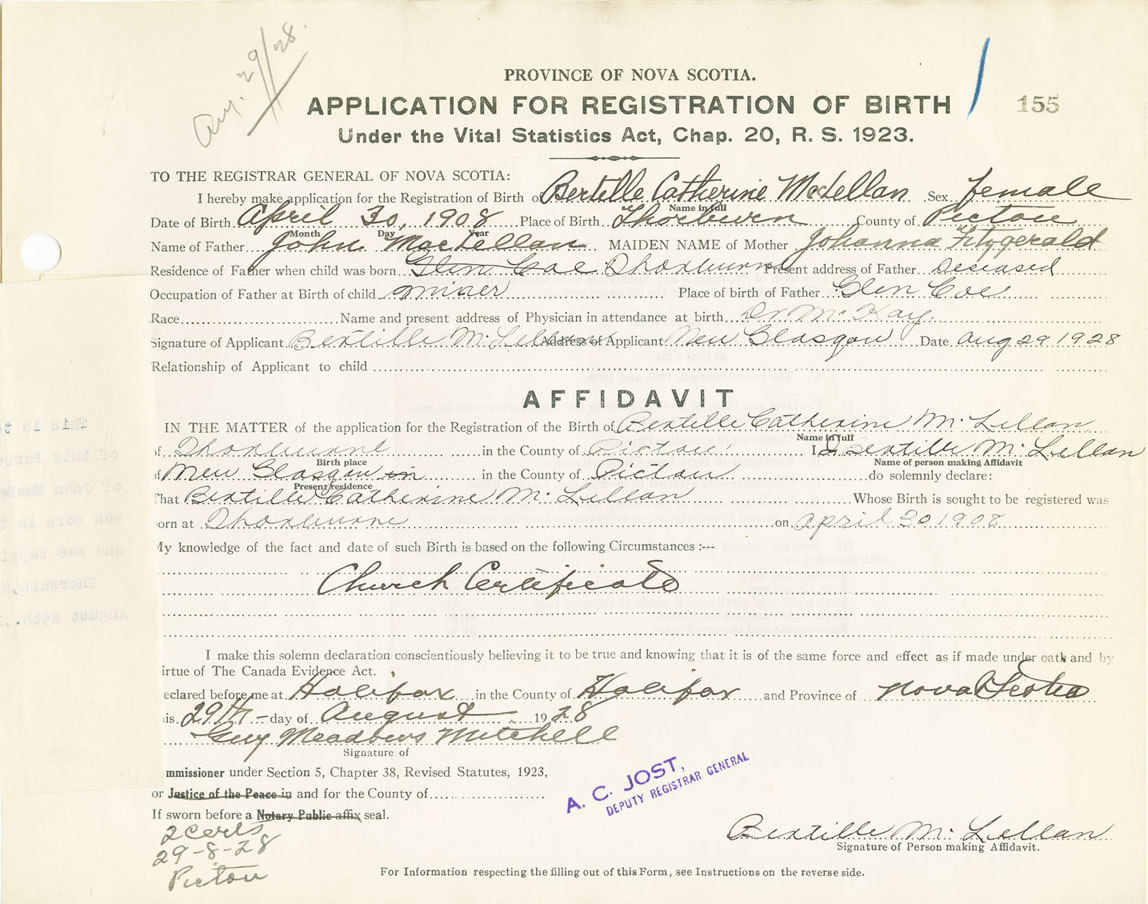 Aug. 29/28.
PROVINCE OF NOVA SCOTIA.
APPLICATION FOR REGISTRATION OF BIRTH 155
Under the Vital Statistics Act, Chap. 20, R. S. 1923.
TO THE REGISTRAR GENERAL OF NOVA SCOTIA:
I hereby make application for the Registration of Birth of Bertille Catherine McLellan Sex female
Name in full
Date of Birth April 30, 1908 Place of Birth Thorburn County of Pictou
Month Day Year
Name of Father John MacLellan MAIDEN NAME of Mother Johanna Fitzgerald
Residence of Father when child was born Glen Coe Thorburne Present address of Father Deceased
Occupation of Father at Birth of child miner Place of birth of Father Glen Coe
Race Name and present address of Physician in attendance at birth Dr McKay
Signature of Applicant Bertille McLellan Address of Applicant New Glasgow Date Aug 29 1928
Relationship of Applicant to child
AFFIDAVIT
IN THE MATTER of the application for the Registration of the Birth of Bertille Catherine McLellan
Name in full
of Thorburne in the County of Pictou I Bertille McLellan
Birth place Name of person making Affidavit
of New Glasgow in in the County of Pictou do solemnly declare:
Present residence
That Bertille Catherine McLellan Whose Birth is sought to be registered was
born at Thorburne on April 30 1908
My knowledge of the fact and date of such Birth is based on the following Circumstances :---
Church Certificate
I make this solemn declaration conscientiously believing it to be true and knowing that it is of the same force and effect as if made under oath and by
irtue of The Canada Evidence Act.
eclared before me at Halifax in the County of Halifax and Province of Nova Scotia
is 29th - day of August 1928
Guy Meadows Mitchell
Signature of
mmissioner under Section 5, Chapter 38, Revised Statutes, 1923,
or Justice of the Peace in and for the County of
If sworn before a Notary Public affix seal.
A. C. JOST,
DEPUTY REGISTRAR GENERAL
2 Certs
29-8-28
Pictou
Bertille McLellan
Signature of Person making Affidavit.
For Information respecting the filling out of this Form, see Instructions on the reverse side.